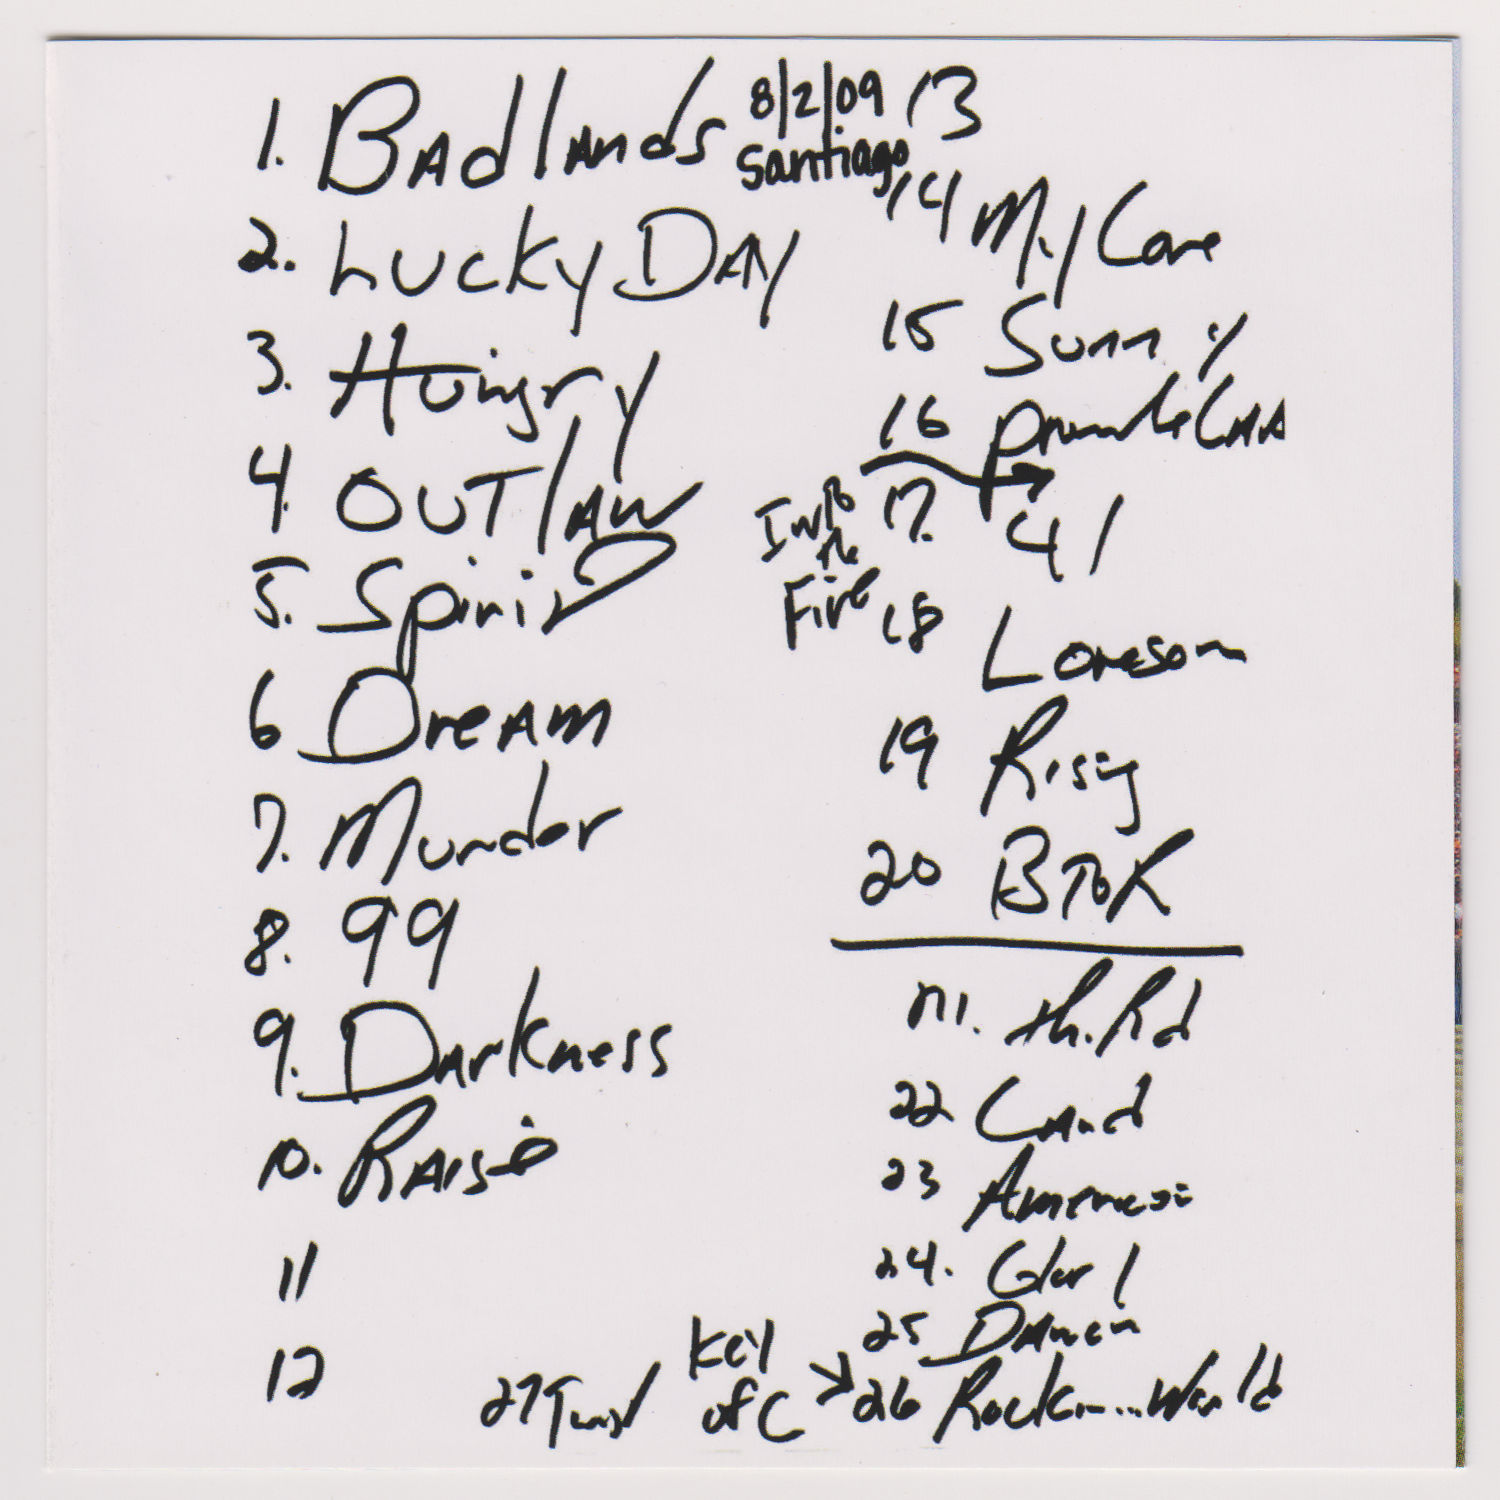 1. Badlands
8/2/09
Santiago
2. Lucky Day
3. Hungry
4. OUTlaw
5. Spirit
6 Dream
7. Murder
8. 99
9. Darkness
10. Raise
11
12
13
14 My Love
15 Sunny
16
Into
the
Fire
17. 41
18 Lonesom
19 Rising
20 BTOR
21. th. Rd
22
23
24. Glory
25 Dancin
Key
of C
26 Rockin...World
27 Twist